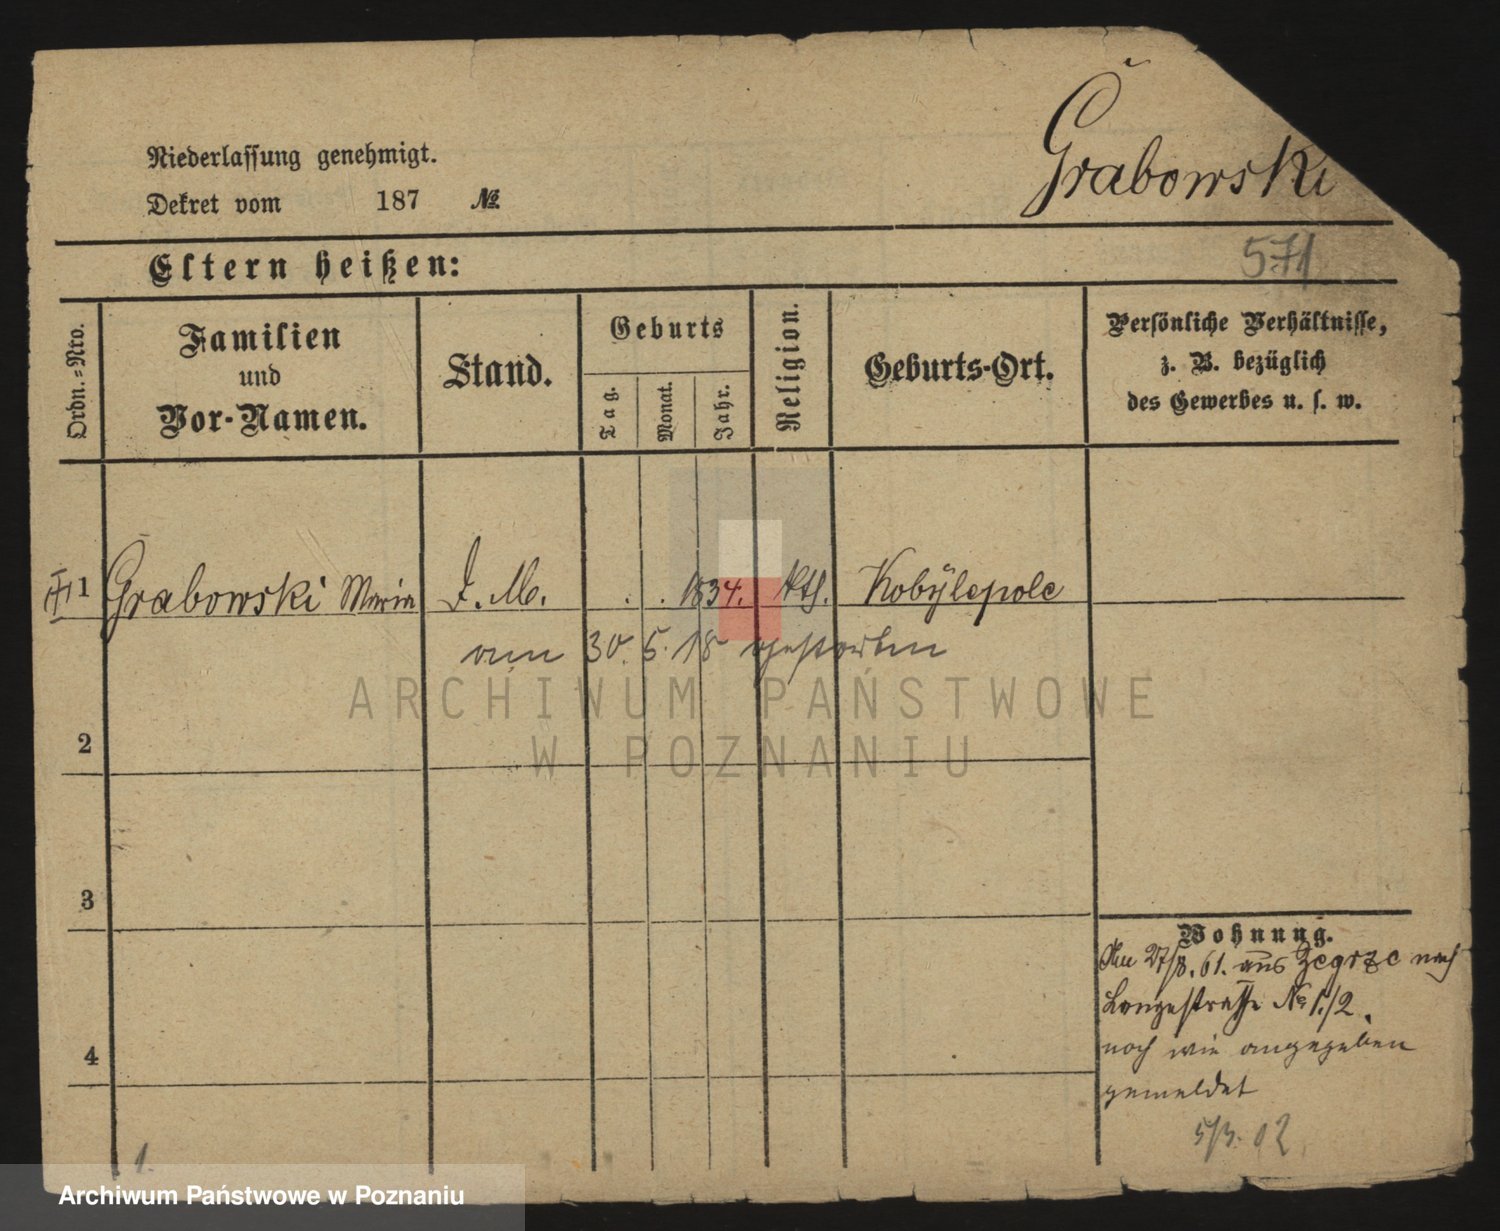 Grabowski
Niederlassung genehmigt.
Dekret vom 187 №
571
Eltern heißen:
Ordn.=Nro.
Familien
und
Vor-Namen.
Stand.
Geburts
Tag.
Monat.
Jahr.
Religion.
Geburts-Ort.
Persönliche Verhältnisse,
z. B. bezüglich
des Gewerbes u. s. w.
1 Grabowski Maria D. M. . . 1834. kth. Kobylepole
am 30. 5. 18 gestorben
ARCHIWUM PAŃSTWOWE
W POZNANIU
2
3
4
Wohnung.
Am 27/8. 61. aus Zegrze nach
Langestraße № 1./2.
noch wie angegeben
gemeldet
5/3. 02
1.
Archiwum Państwowe w Poznaniu